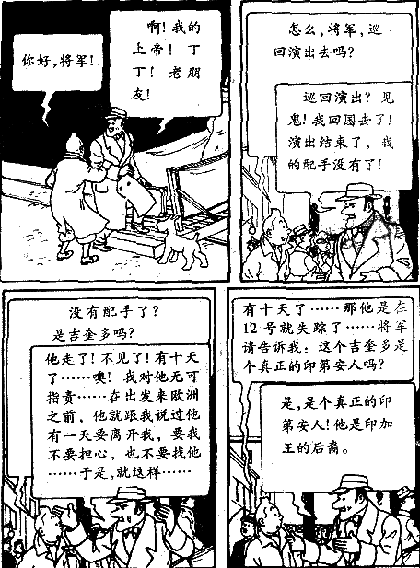 你好,将军!
啊!我的
上帝!丁
丁!老朋
友!
怎么,将军,巡
回演出去吗?
巡回演出?见
鬼!我回国去了!
演出结束了,我
的配手没有了!
没有配手了?
是吉奎多吗?
他走了!不见了!有十天
了……噢!我对他无可
指责……在出发来欧洲
之前,他就跟我说过他
有一天要离开我,要我
不要担心,也不要找他
……于是,就这样……
有十天了……那他是在
12号就失踪了……将军
请告诉我:这个吉奎多是
个真正的印第安人吗?
是,是个真正的印
第安人!他是印加
王的后裔。